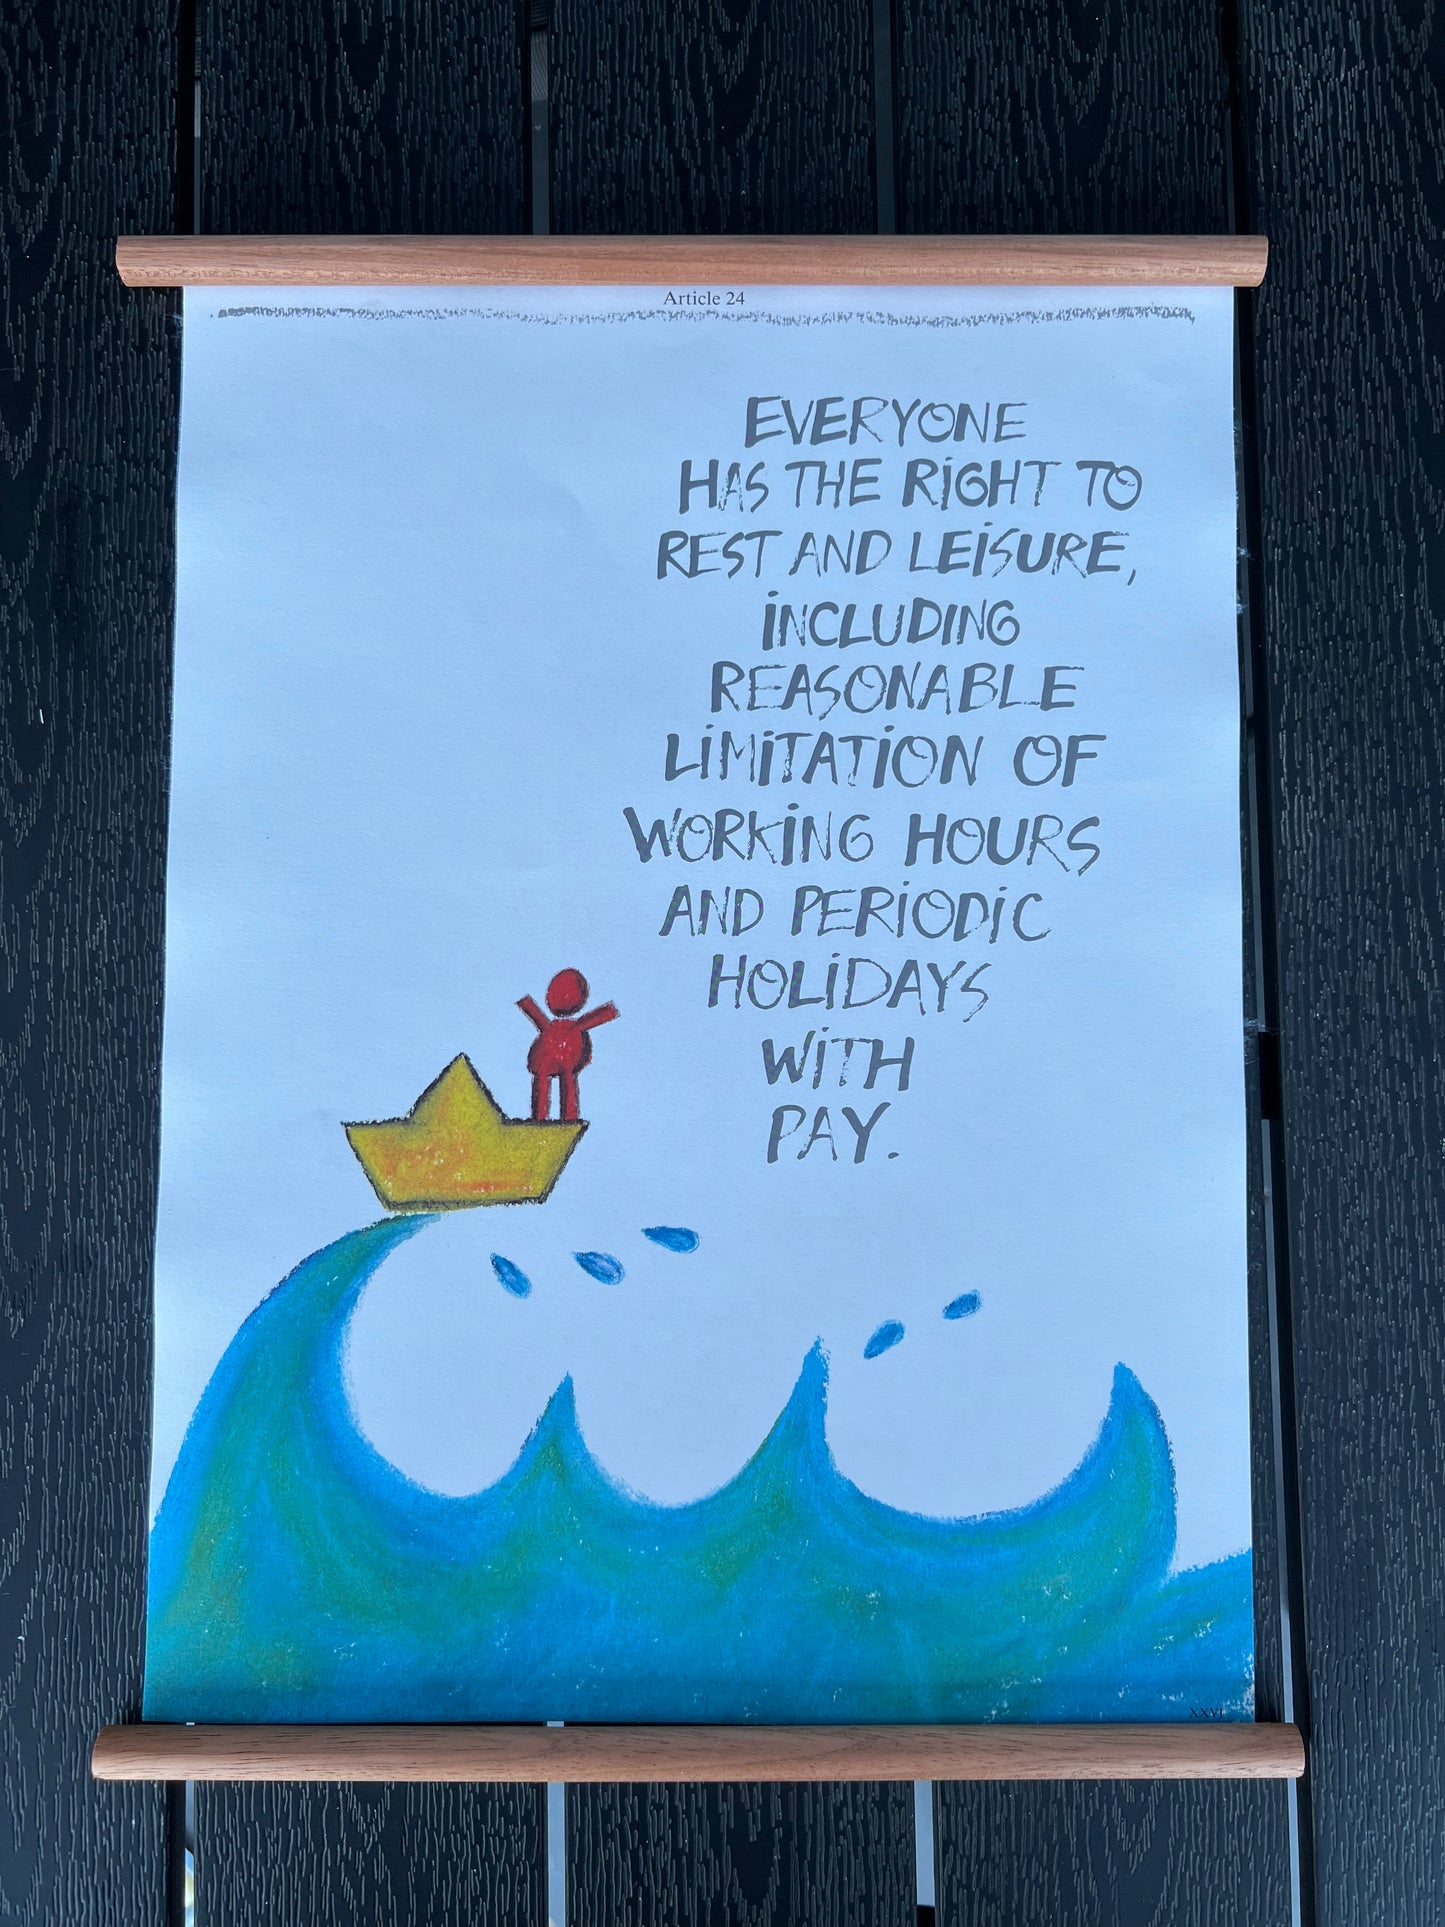 Article 24
EVERYONE
HAS THE RiGHT TO
REST AND LEiSURE,
iNCLUDING
REASONABLE
LiMiTATiON OF
WORKiNG HOURS
AND PERiODiC
HOLiDAYS
WiTH
PAY.
XXVI